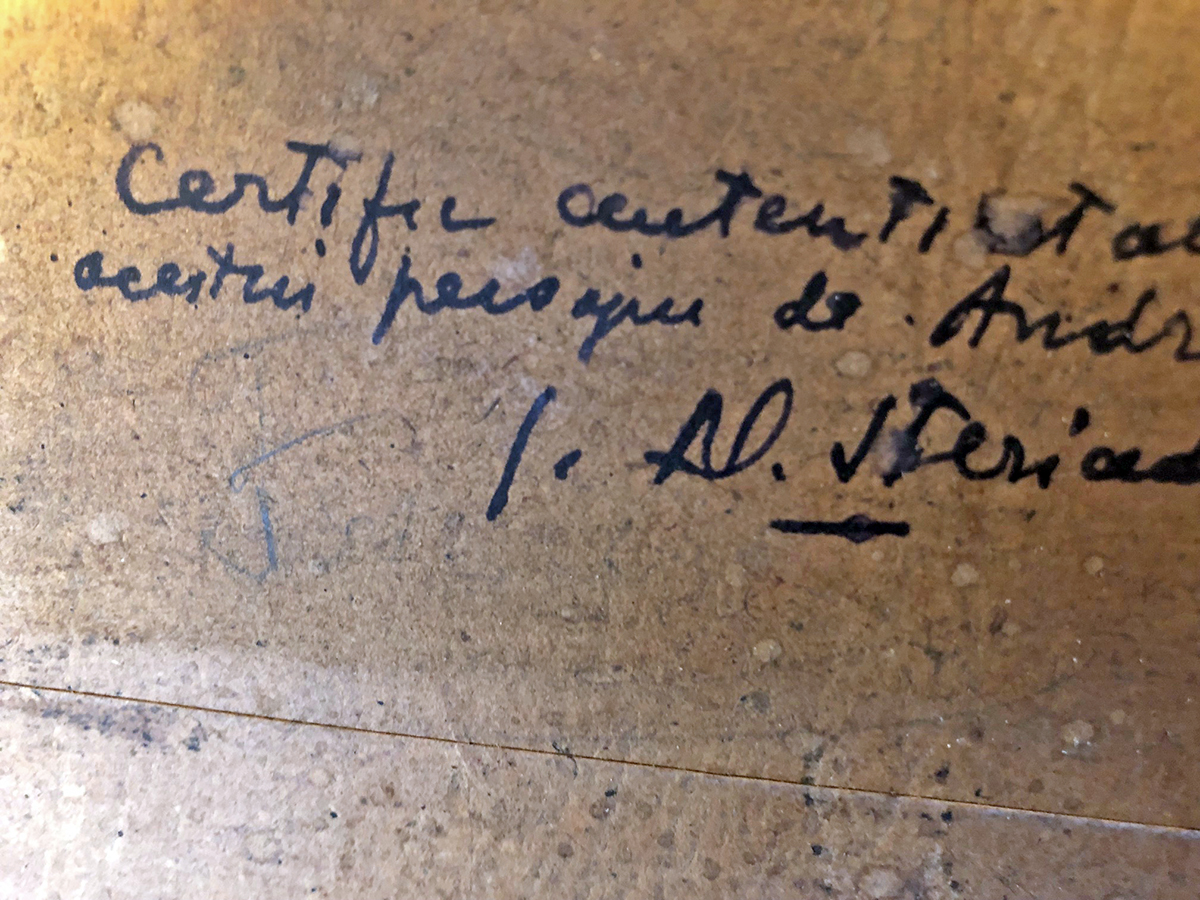 Certific autenticitae
acestui peisajiu de Andr
J. Al. Steriad